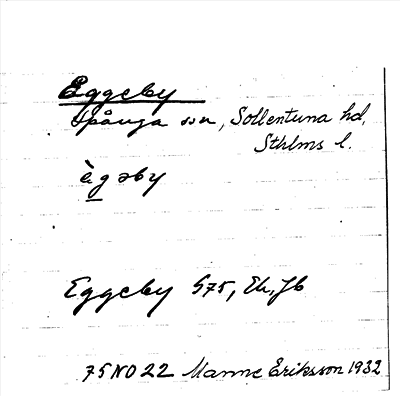 Eggeby
Spånga sn, Sollentuna hd,
Sthlms l.
ègəby
Eggeby G75, Ek, Jb
75 NO 22 Manne Eriksson 1932